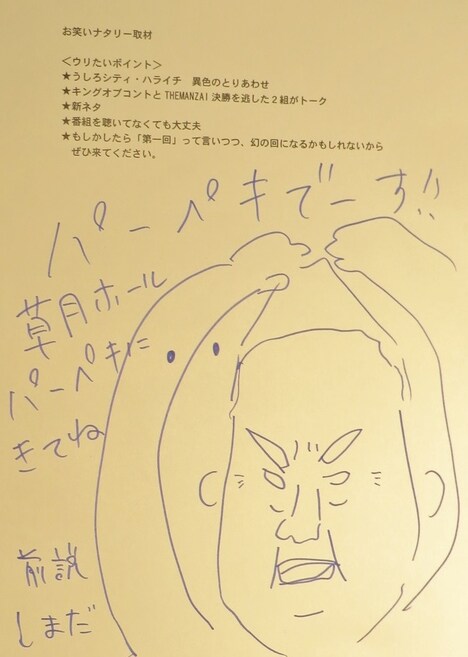 お笑いナタリー取材
＜ウリたいポイント＞
★うしろシティ・ハライチ　異色のとりあわせ
★キングオブコントとTHEMANZAI決勝を逃した２組がトーク
★新ネタ
★番組を聴いてなくても大丈夫
★もしかしたら「第一回」って言いつつ、幻の回になるかもしれないから
ぜひ来てください。
パーペキでーす!!
草月ホール
パーペキに
きてね
前説
しまだ